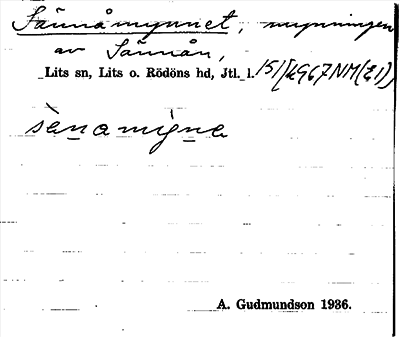 Sännåmynnet, mynningen
av Sännån,
Lits sn, Lits o. Rödöns hd, Jtl. l.
sènamigne
A. Gudmundson 1936.